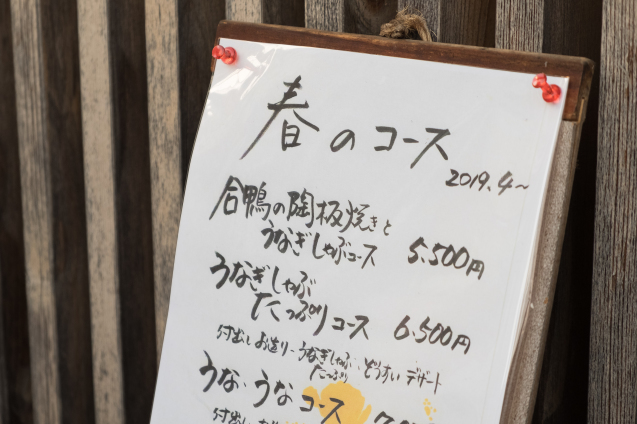 春のコース
2019.4~
合鴨の陶板焼きと
うなぎしゃぶコース 5.500円
うなぎしゃぶ
たっぷりコース 6.500円
付出し お造り うなぎしゃぶ
たっぷり
デザート
うな・うなコース
付出し